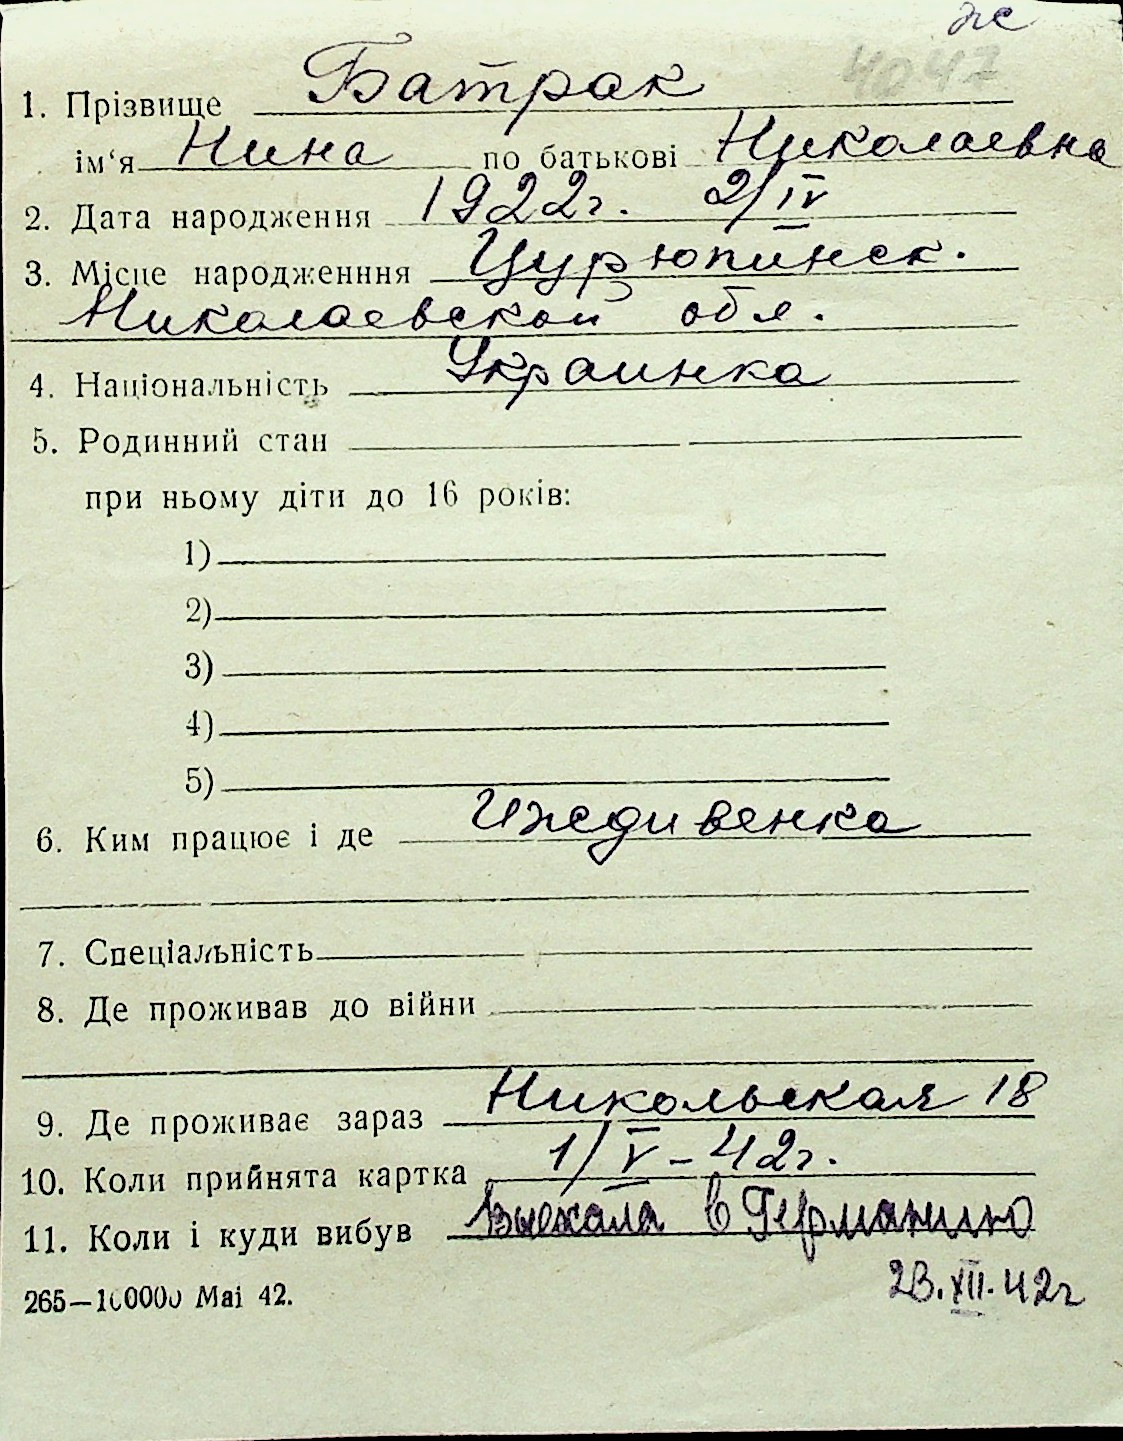 же
4047
1. Прізвище Батрак
ім'я Нина по батькові Николаевна
2. Дата народження 1922г. 2/IV
3. Місце народженння Цурюпинск.
Николаевской обл.
4. Національність Украинка
5. Родинний стан
при ньому діти до 16 років:
1)
2)
3)
4)
5)
6. Ким працює і де Иждивенка
7. Спеціальність
8. Де проживав до війни
9. Де проживає зараз Никольская 18
10. Коли прийнята картка 1/V-42г.
11. Коли і куди вибув Выехала в Германию
23.XII.42г
265—10000 Mai 42.